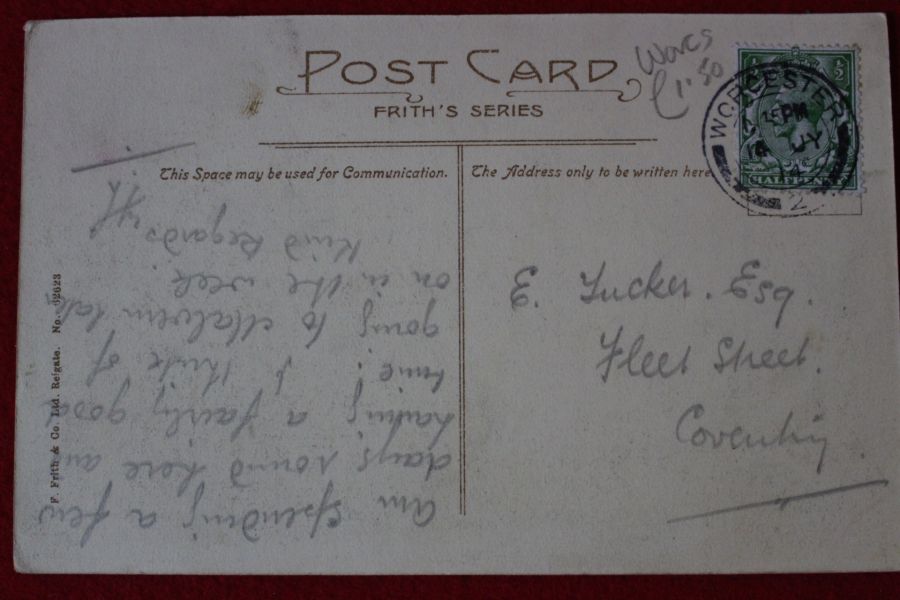 POST CARD
FRITH'S SERIES
Worcs
£1.50
This Space may be used for Communication.
The Address only to be written here.
WORCESTER
15 PM
14 JY
14
2
½
½
HALFPENNY
am spending a few
days round here and
having a fairly good
time; I think of
going to Malvern later
on in the week.
Kind Regards
E. Tucker. Esq.
Fleet Street.
Coventry
F. Frith & Co. Ltd. Reigate. No. 62623